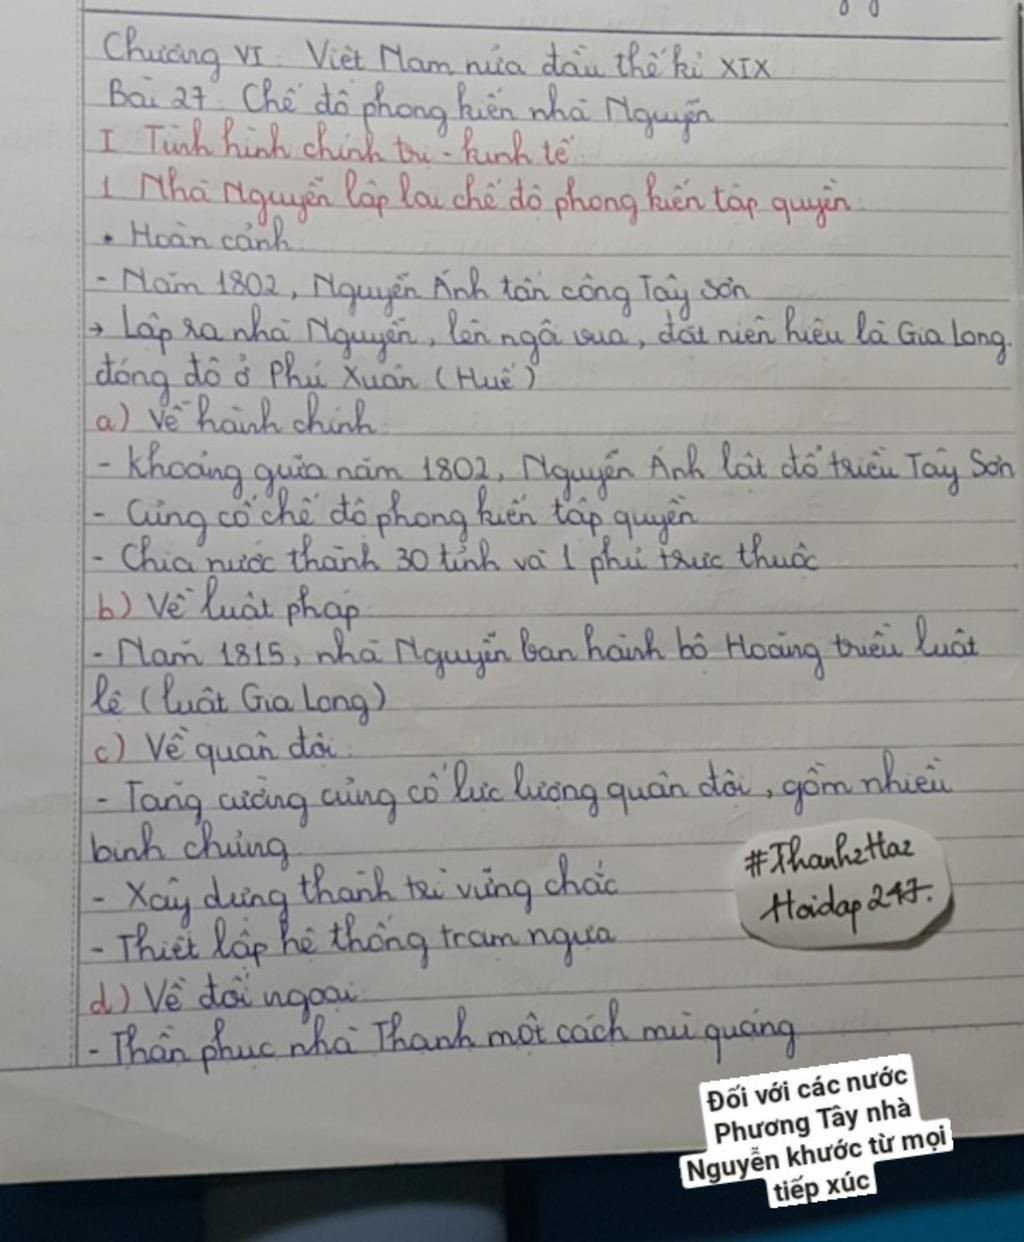 Chương VI. Việt Nam nửa đầu thế kỉ XIX
Bài 27. Chế độ phong kiến nhà Nguyễn
I. Tình hình chính trị - kinh tế.
1. Nhà Nguyễn lập lại chế độ phong kiến tập quyền.
• Hoàn cảnh:
- Năm 1802, Nguyễn Ánh tấn công Tây Sơn
→ Lập ra nhà Nguyễn, lên ngôi vua, đặt niên hiệu là Gia Long.
đóng đô ở Phú Xuân (Huế)
a) Về hành chính:
- Khoảng giữa năm 1802, Nguyễn Ánh lật đổ triều Tây Sơn
- Củng cố chế độ phong kiến tập quyền
- Chia nước thành 30 tỉnh và 1 phủ trực thuộc
b) Về luật pháp:
- Năm 1815, nhà Nguyễn ban hành bộ Hoàng triều luật
lệ (luật Gia Long)
c) Về quân đội:
- Tăng cường củng cố lực lượng quân đội, gồm nhiều
binh chủng
- Xây dựng thành trì vững chắc
- Thiết lập hệ thống trạm ngựa
#Thanh2Ha2
Hoidap247.
d) Về đối ngoại:
- Thần phục nhà Thanh một cách mù quáng
Đối với các nước
Phương Tây nhà
Nguyễn khước từ mọi
tiếp xúc